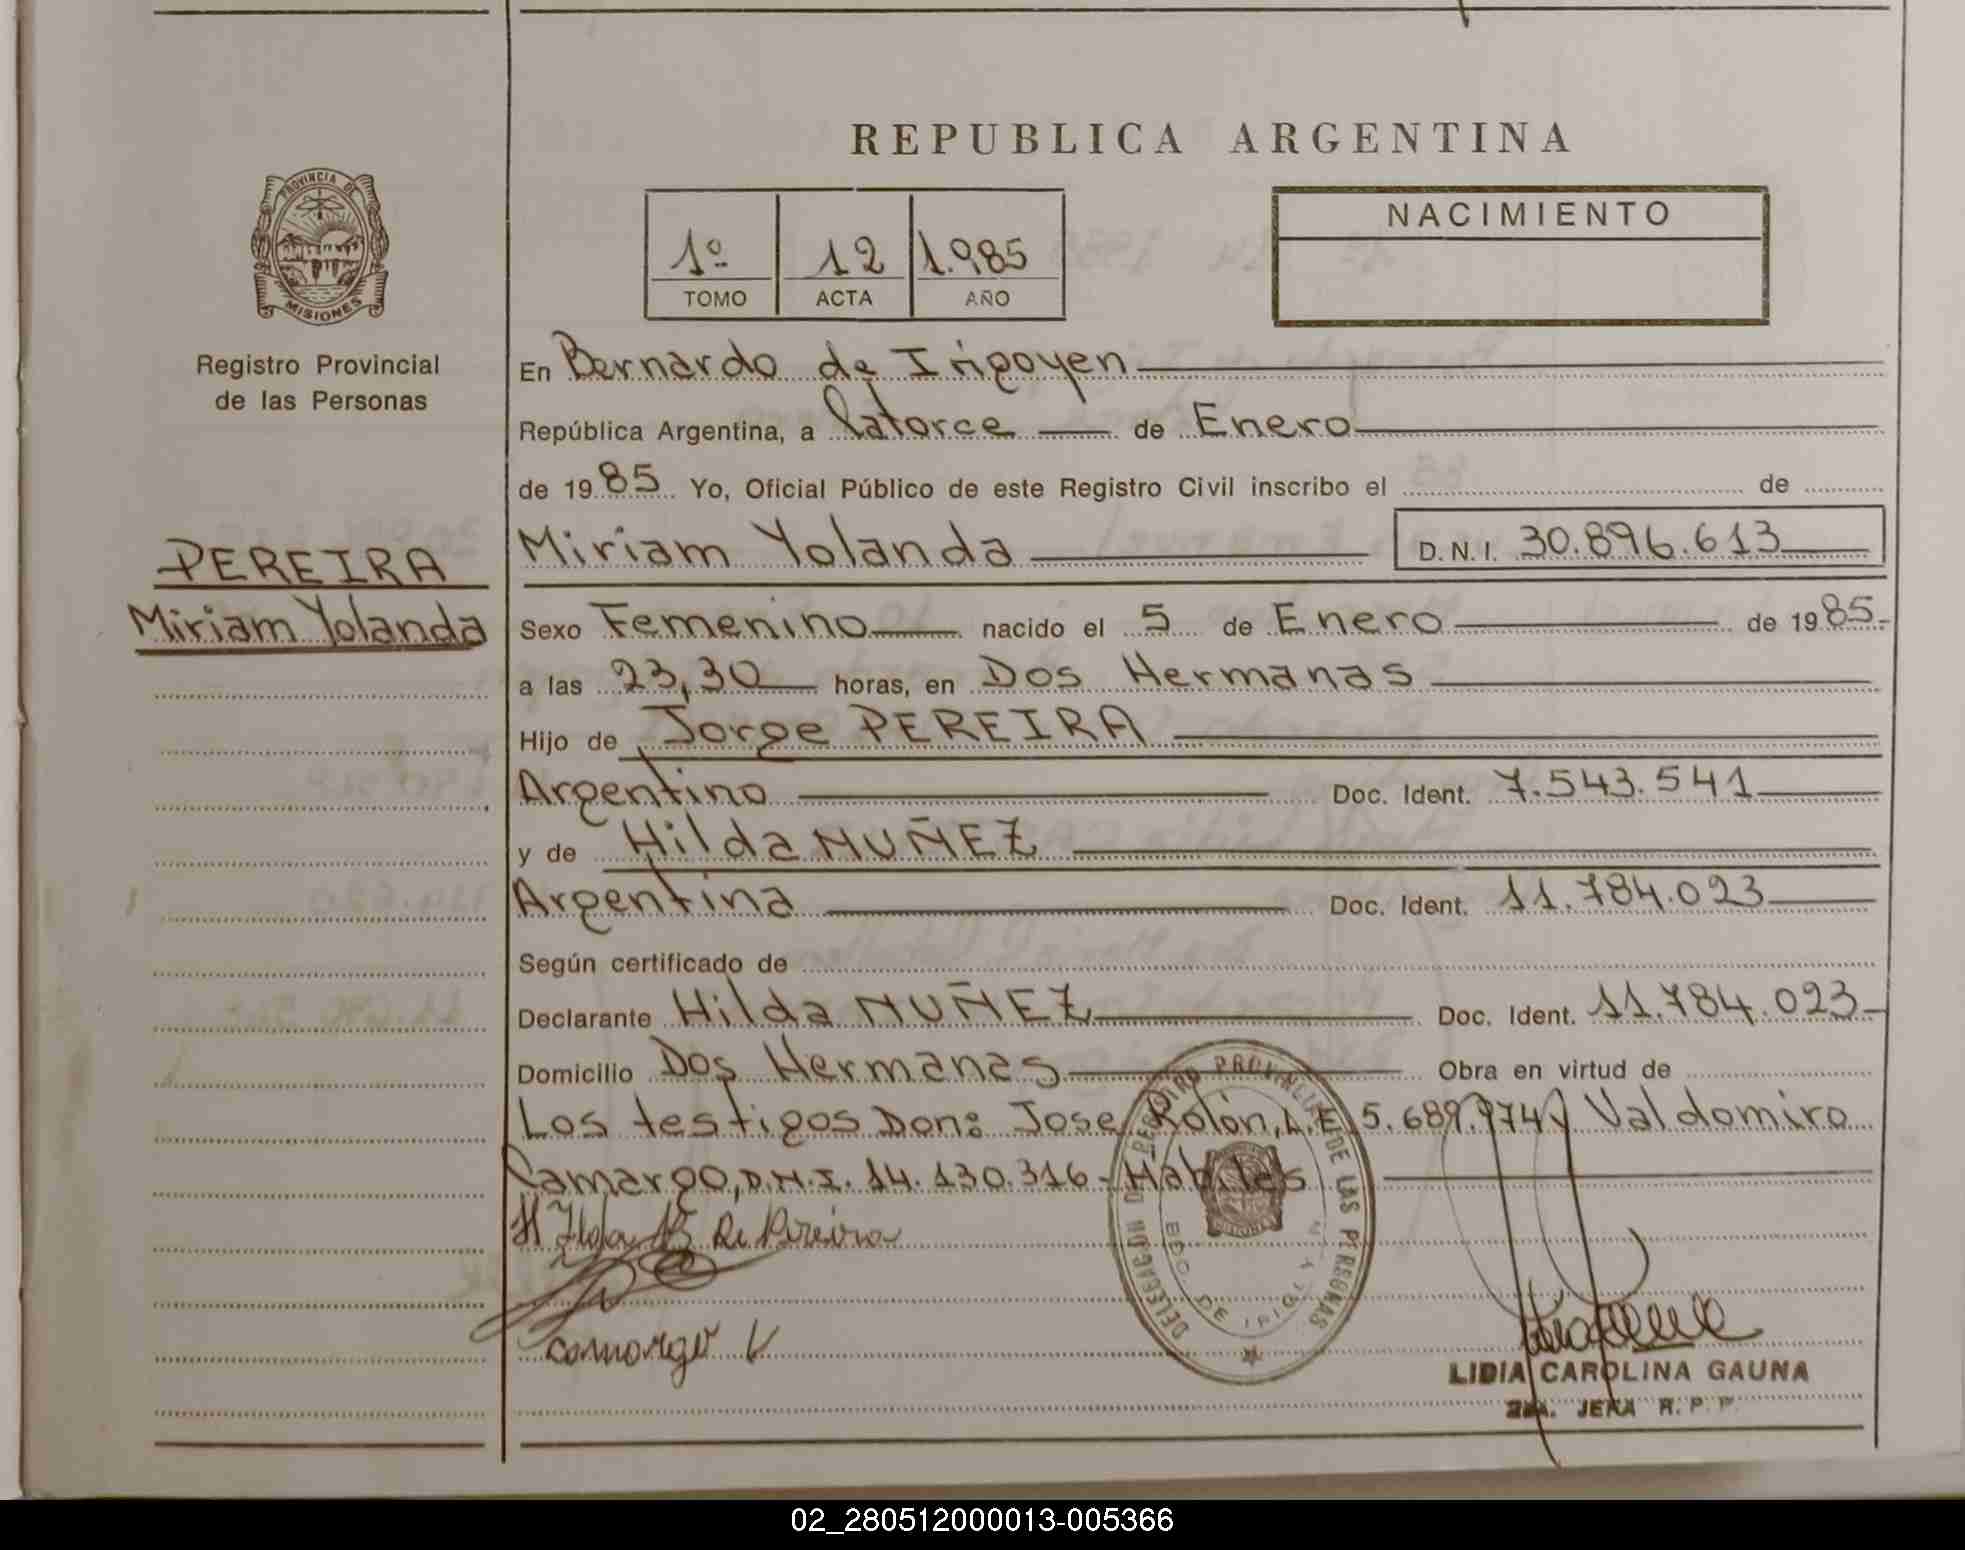 REPUBLICA ARGENTINA
PROVINCIA DE
MISIONES
Registro Provincial
de las Personas
1º 12 1.985
TOMO ACTA AÑO
NACIMIENTO
En Bernardo de Irigoyen
República Argentina, a Catorce de Enero
de 1985 Yo, Oficial Público de este Registro Civil inscribo el de
Miriam Yolanda D.N.I. 30.896.613
PEREIRA
Miriam Yolanda
Sexo Femenino nacido el 5 de Enero de 1985
a las 23,30 horas, en Dos Hermanas
Hijo de Jorge PEREIRA
Argentino Doc. Ident. 7.543.541
y de Hilda NUÑEZ
Argentina Doc. Ident. 11.784.023
Según certificado de
Declarante Hilda NUÑEZ Doc. Ident. 11.784.023
Domicilio Dos Hermanas Obra en virtud de
Los testigos Don: Jose Rolón, L.E. 5.689.974 y Valdomiro
Camargo, D.N.I. 14.130.316 - Habiles
De Pireira
camargo V
DELEGACION D REGISTRO PROVINCIAL DE LAS PERSONAS
BDO. DE IRIGOYEN
LIDIA CAROLINA GAUNA
2da. JEFA R. P. P.
02_280512000013-005366